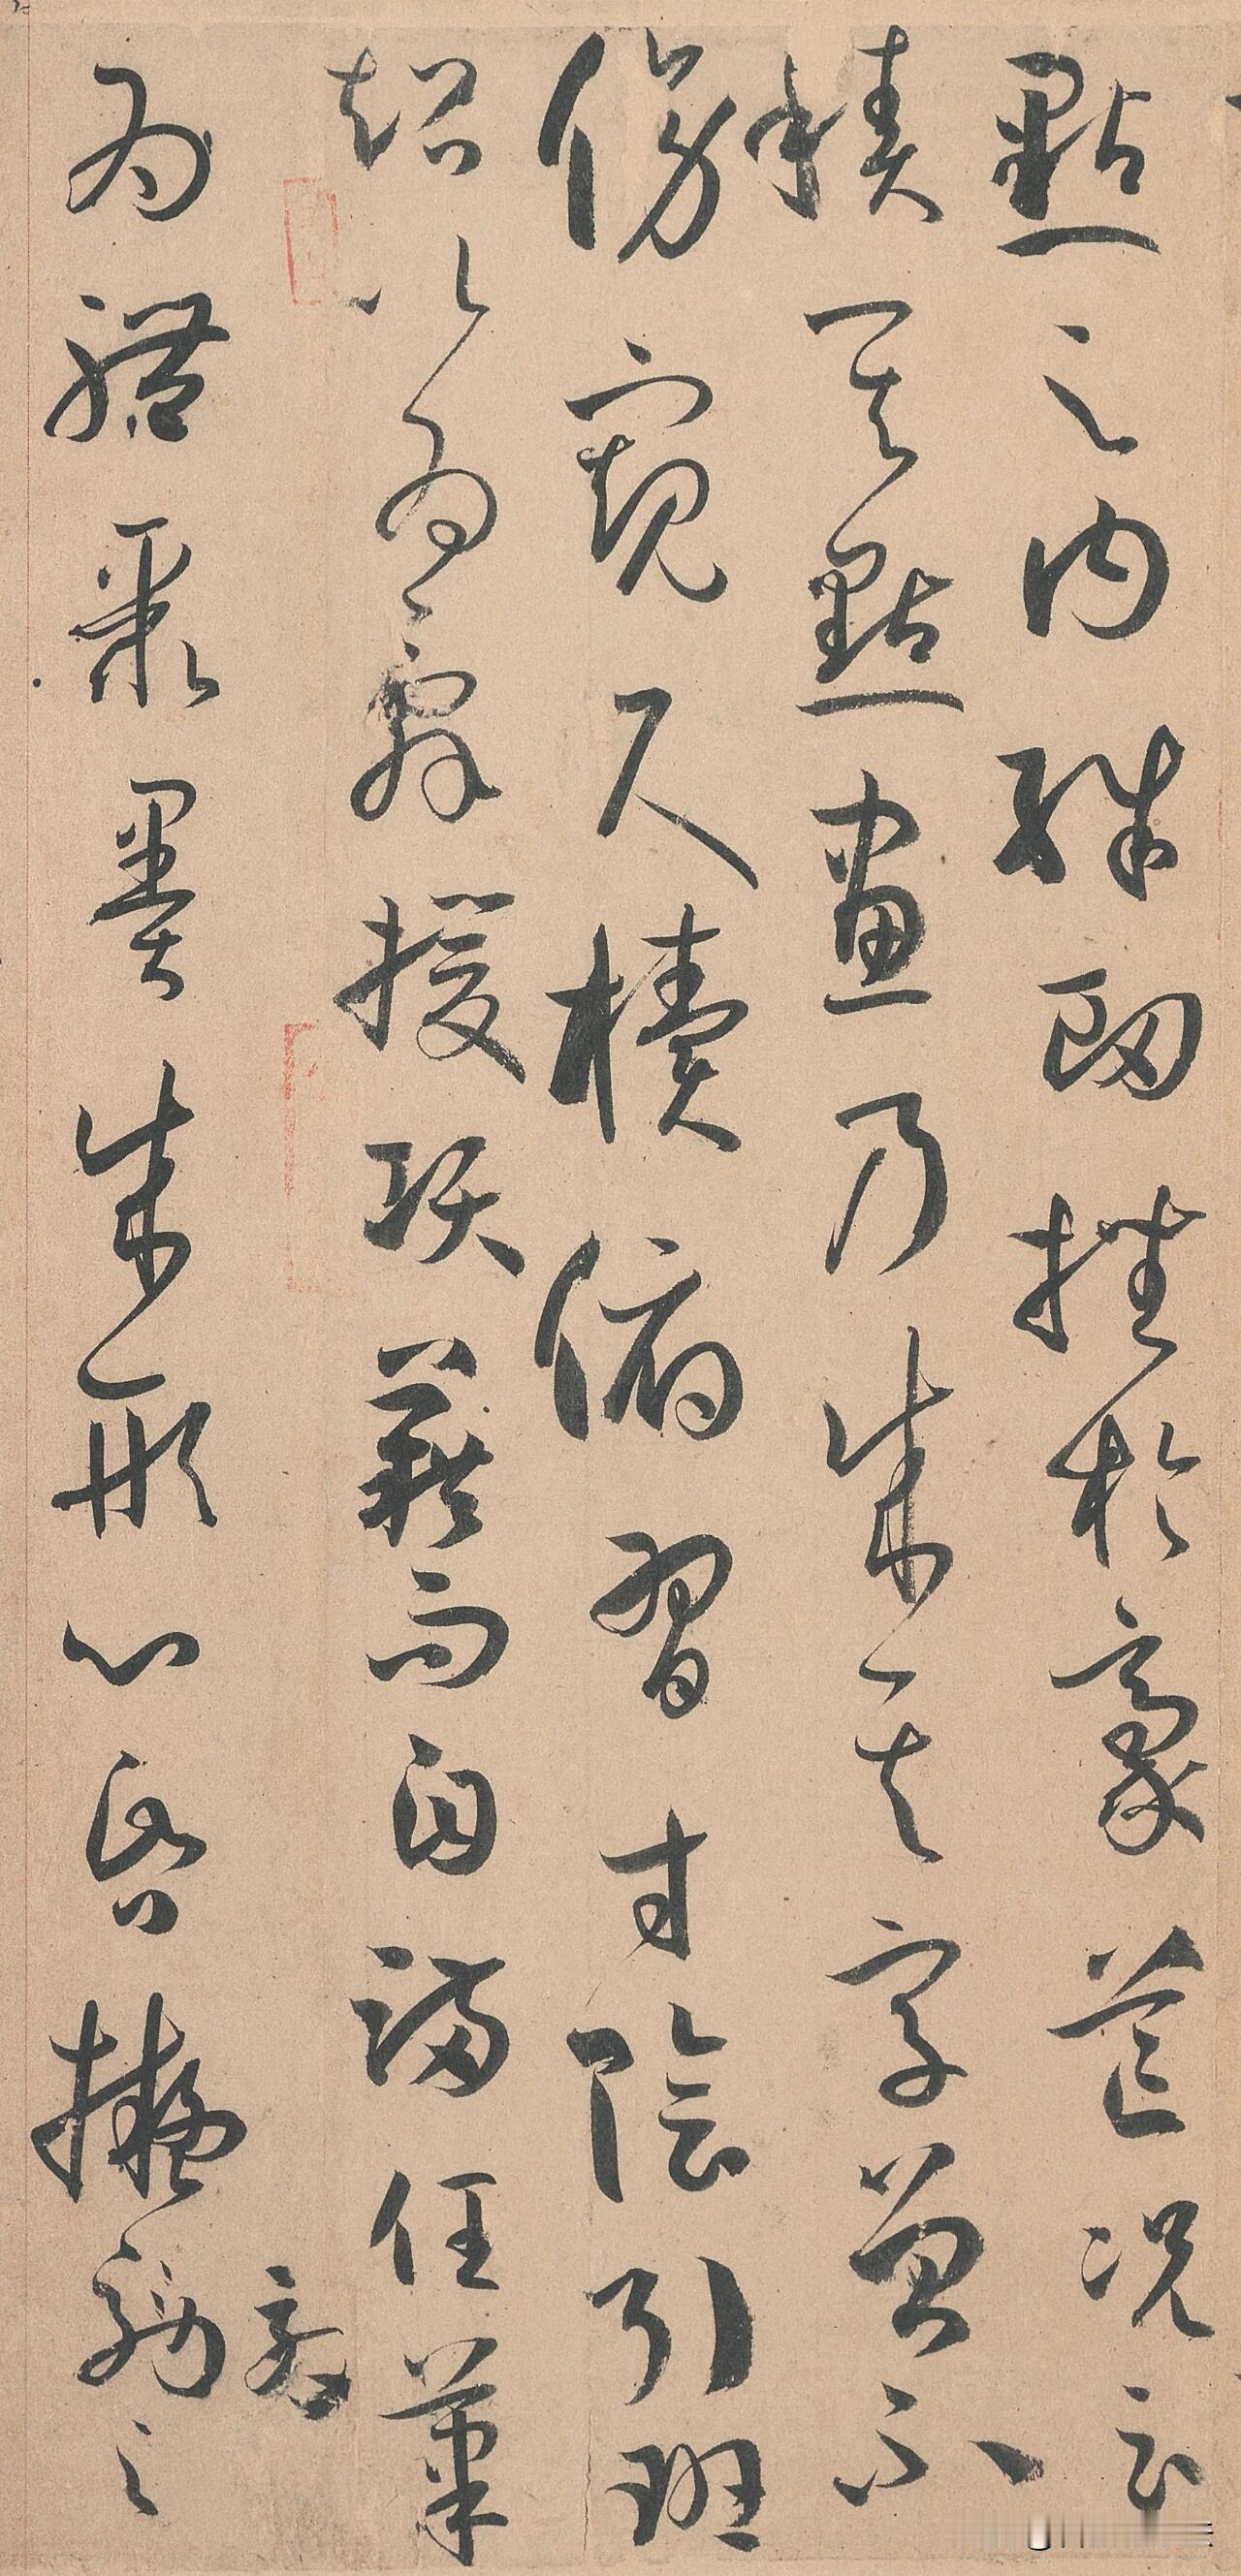 點之內殊衄挫於豪芒況云
積其點畫乃成其字曾不
傍窺尺牘俯習寸陰引班
超以為辭援項籍而自滿任筆
為體聚墨成形心昏擬効之